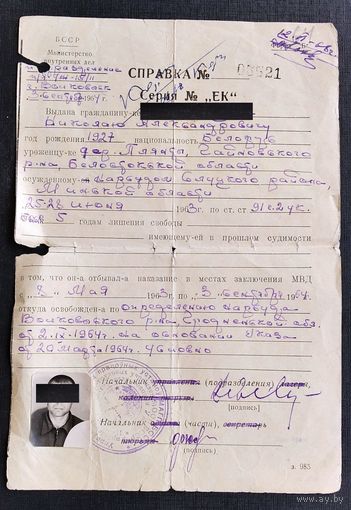 БССР
Министерство
внутренних дел
г. Волковыск
3 сентября 1964
СПРАВКА № 05921
Серия № „ЕК"
Выдана гражданину-ке
Николаю Александровичу
год рождения 1927 национальность Белорус
уроженцу-ке дер.
р-на Белостокской области
осужденному Нарсудом Слуцкого района,
Минской области
25-28 июня 1963г. по ст. ст 91 ч.2 ук.
5 годам лишения свободы
имеющей-ей в прошлом судимости
в том, что он-а отбывал-а наказание в местах заключения МВД
с 8 Мая 1963г. по 3 сентября 1964.
откуда освобожден-а по определению Нарсуда
Волковысского р-на, Гродненской обл.
от 2.IX-1964г. на основании Указа
от 20 марта 1964г. условно
Начальник управления (подразделения) лагеря,
колонии
(подпись)
Начальник отдела (части), секретарь
тюрьмы
(подпись)
з. 985
ay.by